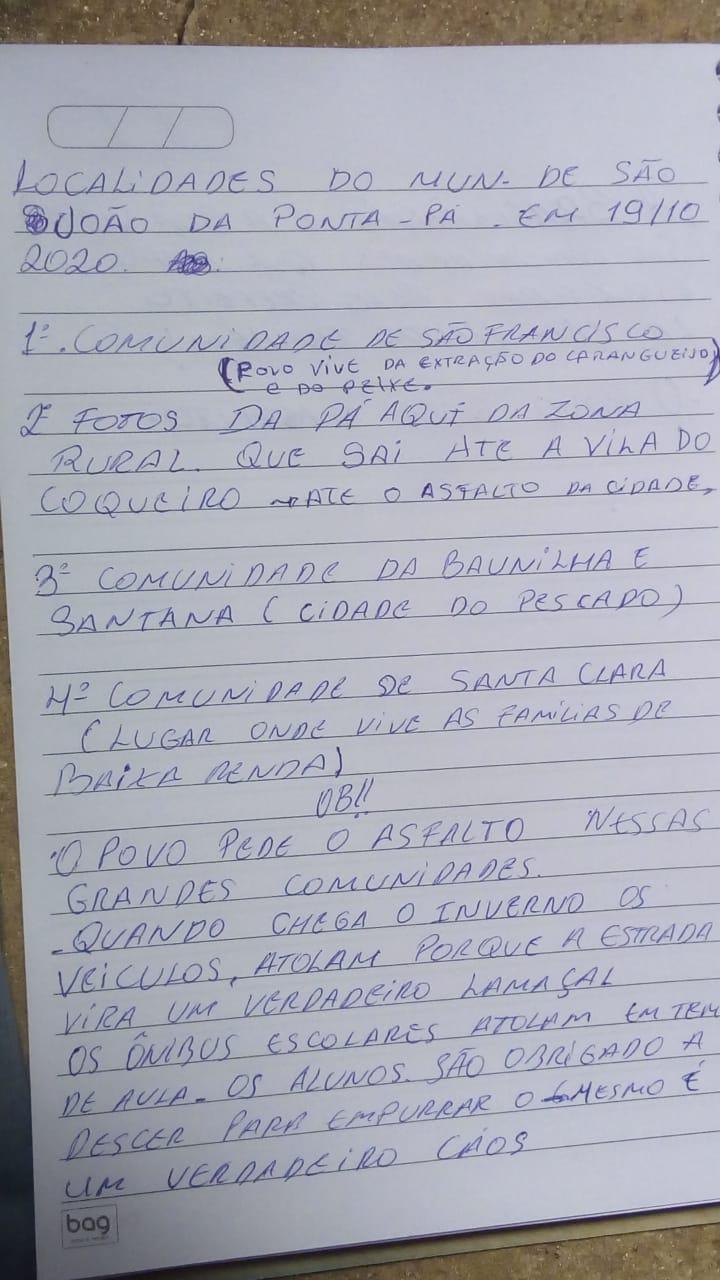 LOCALIDADES DO MUN. DE SÃO
JOÃO DA PONTA-PÁ. EM 19/10
2020.
1ª. COMUNIDADE DE SÃO FRANCISCO
(POVO VIVE DA EXTRAÇÃO DO CARANGUEIJO)
E DO PEIXE.
2ª FOTOS DA PÁ AQUI DA ZONA
RURAL. QUE SAI ATE A VILA DO
COQUEIRO ATE O ASFALTO DA CIDADE,
3ª COMUNIDADE DA BAUNILHA E
SANTANA (CIDADE DO PESCADO)
4ª COMUNIDADE DE SANTA CLARA
(LUGAR ONDE VIVE AS FAMÍLIAS DE
BAIXA RENDA)
OB!!
O POVO PEDE O ASFALTO NESSAS
GRANDES COMUNIDADES.
- QUANDO CHEGA O INVERNO OS
VEÍCULOS, ATOLAM PORQUE A ESTRADA
VIRA UM VERDADEIRO LAMAÇAL
OS ÔNIBUS ESCOLARES ATOLAM EM TEM
DE AULA. OS ALUNOS. SÃO OBRIGADO A
DESCER PARA EMPURRAR O MESMO É
UM VERDADEIRO CÁOS
bag